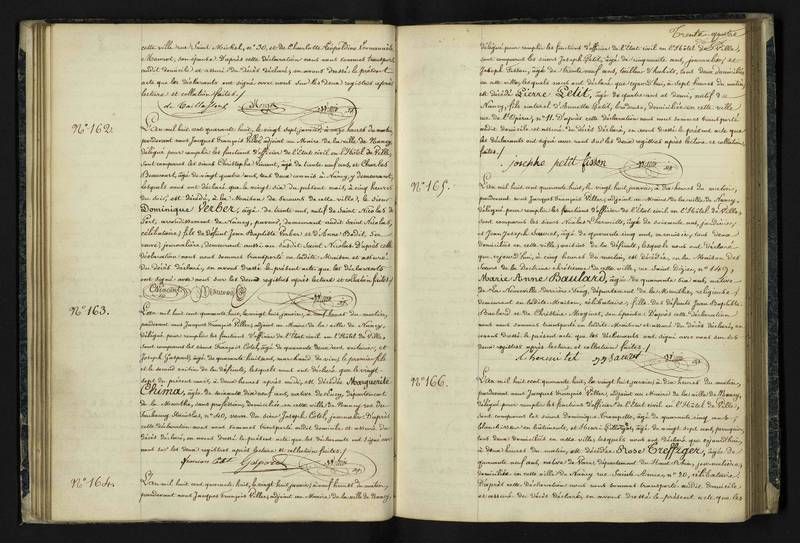 cette ville rue Saint Michel, n° 30, et de Charlotte Léopoldine Emmanuelle
son épouse. D'après cette déclaration nous nous sommes transporté
audit domicile et assuré du décès déclaré, en avons dressé le présent
acte que les déclarants ont signé avec nous sur les deux registres après
lecture et collation faites./.
N° 162.
L'an mil huit cent quarante huit, le vingt sept janvier, à onze heures du matin,
pardevant nous Jacques François Villez, adjoint au Maire de la ville de Nancy,
délégué pour remplir les fonctions d'officier de l'Etat civil en l'Hôtel de Ville,
sont comparus les sieurs Christophe Vincent, âgé de trente neuf ans, et Charles
âgé de vingt quatre ans, tous deux à Nancy, y demeurant,
lesquels nous ont déclaré que le vingt six du présent mois, à cinq heures
du soir, est décédé, à la Maison de Secours de cette ville, le sieur
Dominique Verber, âgé de trente ans, natif de Saint Nicolas de
Port, arrondissement de Nancy, demeurant audit Saint Nicolas,
célibataire, fils de défunt Jean Baptiste Verber et d'Anne Bodit, sa
veuve, journalière, demeurant aussi au susdit Saint Nicolas. D'après cette
déclaration nous nous sommes transporté en ladite Maison et assuré
du décès déclaré, en avons dressé le présent acte que les déclarants
ont signé avec nous sur les deux registres après lecture et collation faites./.
CVincent
N° 163.
L'an mil huit cent quarante huit, le vingt huit janvier, à neuf heures du matin,
pardevant nous Jacques François Villez, adjoint au Maire de la ville de Nancy,
délégué pour remplir les fonctions d'officier de l'Etat civil en l'Hôtel de Ville,
sont comparus les sieurs François Cotel, âgé de quarante deux ans, et
Joseph Gaspard, âgé de quarante huit ans, marchand de vin, le premier fils
et le second voisin de la défunte, lesquels nous ont déclaré que le vingt-
sept du présent mois, à deux heures après midi, est décédée Marguerite
Chima, âgée de soixante dix neuf ans, native de département
de la Meurthe, sans profession, domiciliée en cette ville de Nancy, rue du
faubourg Stanislas, n° 40, veuve du sieur Joseph Cotel, journalier. D'après
cette déclaration nous nous sommes transporté audit domicile et assuré du
décès déclaré, en avons dressé le présent acte que les déclarants ont signé avec
nous sur les deux registres après lecture et collation faites./.
francois Cotel Gaspard
N° 164.
L'an mil huit cent quarante huit, le vingt huit janvier, à neuf heures du matin,
pardevant nous Jacques François Villez, adjoint au Maire de la ville de Nancy,
Trente-quatre
délégué pour remplir les fonctions d'officier de l'Etat civil en l'Hôtel de Ville,
sont comparus les sieurs Joseph Petit, âgé de cinquante ans, journalier, et
Joseph Fisson, âgé de trente neuf ans, tailleur d'habits, tous deux domiciliés
en cette ville, lesquels nous ont déclaré que cejourd'hui, à sept heures du matin,
est décédé Pierre Petit, âgé de quatre ans et demi, natif de
Nancy, fils naturel d'Annette Petit, brodeuse, domiciliée en cette ville
rue de l'Opéra, n° 11. D'après cette déclaration nous nous sommes transporté
audit domicile et assuré du décès déclaré, en avons dressé le présent acte que
les déclarants ont signé avec nous sur les deux registres après lecture et collation
faites./.
josephe petit fisson
N° 165.
L'an mil huit cent quarante huit, le vingt huit janvier, à dix heures du matin,
pardevant nous Jacques François Villez, adjoint au Maire de la ville de Nancy,
délégué pour remplir les fonctions d'officier de l'Etat civil en l'Hôtel de Ville,
sont comparus les sieurs Nicolas Thouvenel, âgé de soixante ans, jardinier,
et Jean Joseph Sauvet, âgé de quarante cinq ans, menuisier, tous deux
domiciliés en cette ville, voisins de la défunte, lesquels nous ont déclaré
que cejourd'hui, à cinq heures du matin, est décédée, en la Maison des
Soeurs de la Doctrine chrétienne de cette ville, rue Saint Dizier, n° 149,
Marie Anne Baulard, âgée de quarante six ans, native
de La Neuveville derrière Foug, département de la Meurthe, religieuse,
demeurant en ladite Maison, célibataire, fille des défunts Jean Baptiste
Baulard et de Christine son épouse. D'après cette déclaration
nous nous sommes transporté en ladite Maison et assuré du décès déclaré, en
avons dressé le présent acte que les déclarants ont signé avec nous sur les
deux registres après lecture et collation faites./.
N° 166.
L'an mil huit cent quarante huit, le vingt huit janvier, à dix heures du matin,
pardevant nous Jacques François Villez, adjoint au Maire de la ville de Nancy,
délégué pour remplir les fonctions d'officier de l'Etat civil en l'Hôtel de Ville,
sont comparus les sieurs Dominique âgé de quarante cinq ans,
en bâtiments, et Henri âgé de vingt sept ans,
tous deux domiciliés en cette ville, lesquels nous ont déclaré que cejourd'hui,
à deux heures du matin, est décédée Rose Treffiger, âgée de
quarante neuf ans, native de département du Haut-Rhin, journalière,
domiciliée en cette ville de Nancy, rue n° 20, célibataire.
D'après cette déclaration nous nous sommes transporté audit domicile
et assuré du décès déclaré, en avons dressé le présent acte que les